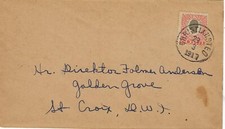 Hr. Direktor Folmer Andersen
Golden Grove
St Croix, D.W.I.